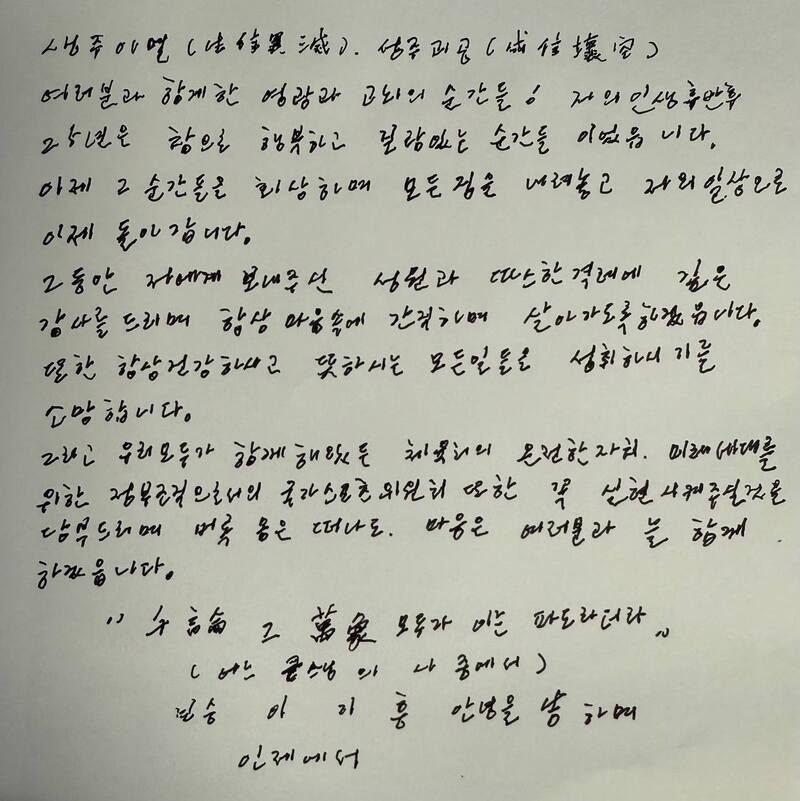 생주이멸 (生住異滅). 성주괴공 (成住壞空)
여러분과 함께한 영광과 고뇌의 순간들! 저의 인생 후반부
25년은 참으로 행복하고 보람있는 순간들 이었읍니다.
이제 그 순간들을 회상하며 모든짐을 내려놓고 저의 일상으로
이제 돌아갑니다.
그동안 저에게 보내주신 성원과 따스한 격려에 깊은
감사를 드리며 항상 마음속에 간직하며 살아가도록 하겠읍니다.
또한 항상 건강하시고 뜻하시는 모든일들을 성취하시기를
소망합니다.
그리고 우리모두가 함께 해왔던 체육회의 온전한 자치. 미래세대를
위한 정부조직으로서의 국가스포츠위원회 또한 꼭 실현 시켜주실것을
당부드리며 비록 몸은 떠나도. 마음은 여러분과 늘 함께
하겠읍니다.
論 그 萬象 모두가 이는 파도라더라"
(어느 큰스님의 시 중에서)
이 기 흥 안녕을 하며
인제에서